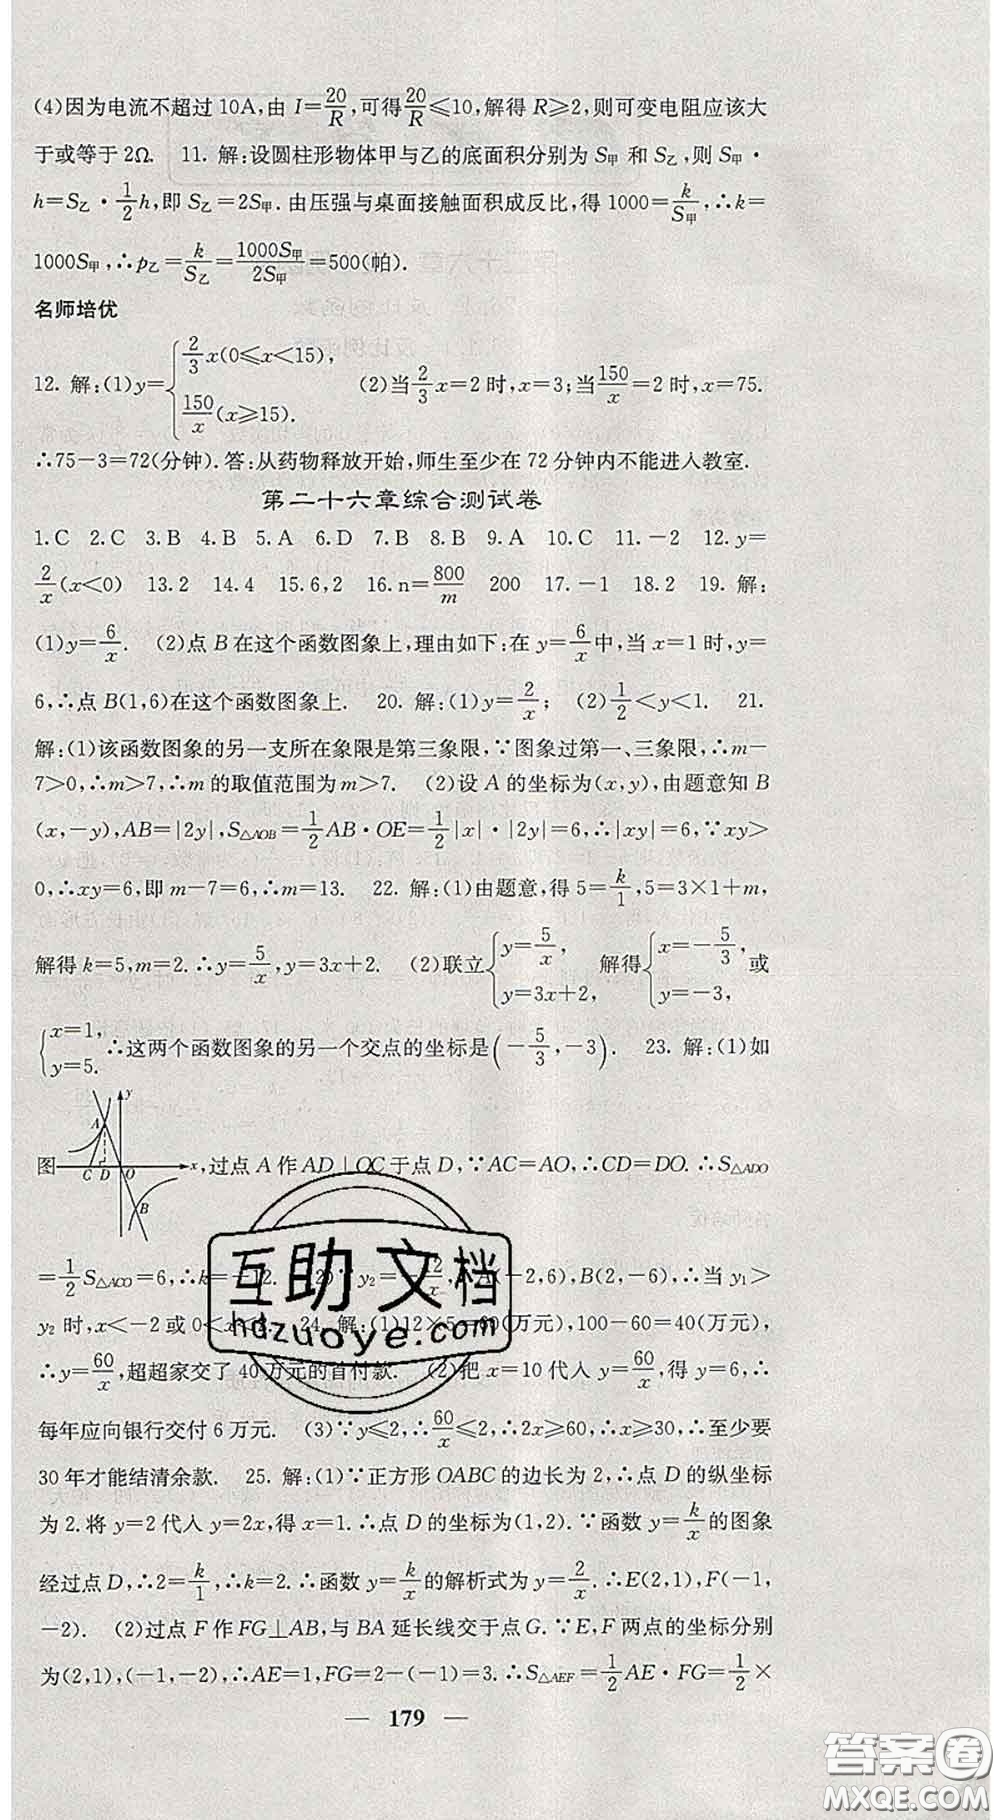 (4)因为电流不超过10A,由 I=20/R,可得20/R≤10,解得 R≥2,则可变电阻应该大
于或等于2Ω. 11. 解:设圆柱形物体甲与乙的底面积分别为 S甲 和 S乙,则 S甲·
h=S乙·1/2h,即 S乙=2S甲.由压强与桌面接触面积成反比,得 1000=k/S甲,∴k=
1000S甲,∴p乙=k/S乙=1000S甲/2S甲=500(帕).
名师培优
12. 解:(1)y={2/3x(0≤x<15), 150/x(x≥15). (2)当2/3x=2时,x=3;当150/x=2时,x=75.
∴75-3=72(分钟).答:从药物释放开始,师生至少在72分钟内不能进入教室.
第二十六章综合测试卷
1.C 2.C 3.B 4.B 5.A 6.D 7.C 8.B 9.A 10.C 11.-2 12.y=
2/x(x<0) 13.2 14.4 15.6,2 16.n=800/m 200 17.-1 18.2 19. 解:
(1)y=6/x. (2)点B在这个函数图象上,理由如下:在y=6/x中,当x=1时,y=
6,∴点B(1,6)在这个函数图象上. 20. 解:(1)y=2/x; (2)1/2<y<1. 21.
解:(1)该函数图象的另一支所在象限是第三象限,∵图象过第一、三象限,∴m-
7>0,∴m>7,∴m的取值范围为m>7. (2)设A的坐标为(x,y),由题意知B
(x,-y),AB=|2y|,S△AOB=1/2AB·OE=1/2|x|·|2y|=6,∴|xy|=6,∵xy>
0,∴xy=6,即m-7=6,∴m=13. 22. 解:(1)由题意,得5=k/1,5=3×1+m,
解得k=5,m=2.∴y=5/x,y=3x+2. (2)联立{y=5/x, y=3x+2, 解得{x=-5/3, y=-3, 或
{x=1, y=5. ∴这两个函数图象的另一个交点的坐标是(-5/3,-3). 23. 解:(1)如
图 y A C D O x B ,过点A作AD⊥OC于点D,∵AC=AO,∴CD=DO.∴S△ADO
=1/2S△ACO=6,∴k=-12. (2)∵y2= 2/x, A(-2,6),B(2,-6),∴当y1>
y2时,x<-2或0<x<2. 24. 解:(1)12×5=60(万元),100-60=40(万元),
∴y=60/x,超超家交了40万元的首付款. (2)把x=10代入y=60/x,得y=6,∴
每年应向银行交付6万元. (3)∵y≤2,∴60/x≤2,∴2x≥60,∴x≥30,∴至少要
30年才能结清余款. 25. 解:(1)∵正方形OABC的边长为2,∴点D的纵坐标
为2.将y=2代入y=2x,得x=1.∴点D的坐标为(1,2).∵函数y=k/x的图象
经过点D,∴2=k/1,∴k=2.∴函数y=k/x的解析式为y=2/x.∴E(2,1),F(-1,
-2). (2)过点F作FG⊥AB,与BA延长线交于点G.∵E,F两点的坐标分别
为(2,1),(-1,-2),∴AE=1,FG=2-(-1)=3.∴S△AEF=1/2AE·FG=1/2×
— 179 —
互助文档
hdzuoye.com
答案圈
MXQE.COM